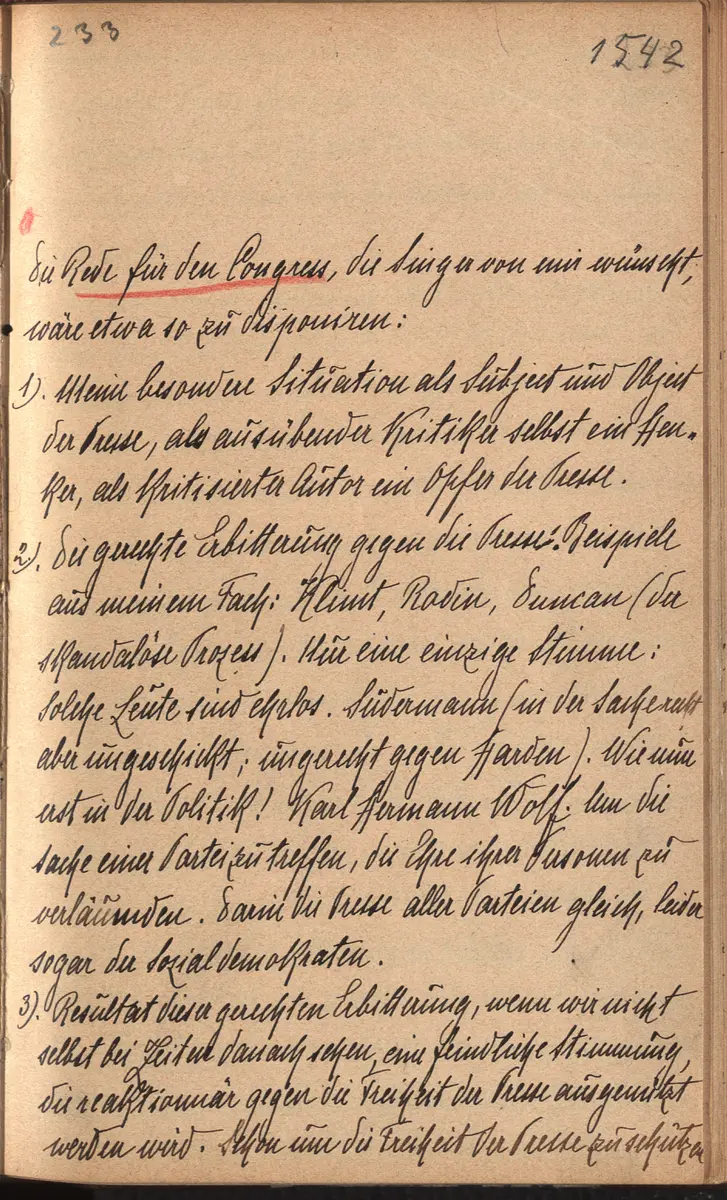 233
1542
Die Rede für den Congress, die Singer von mir wünscht,
wäre etwa so zu disponiren:
1). Meine besondere Situation als Subject und Object
der Presse, als ausübender Kritiker selbst ein Hen-
ker, als kritisierter Autor ein Opfer der Presse.
2). Die gerechte Erbitterung gegen die Presse. Beispiele
aus meinem Fach: Klimt, Rodin, Duncan (der
skandalöse Prozess). Nur eine einzige Stimme:
solche Leute sind ehrlos. Sudermann (in der Sache recht
aber ungeschickt; ungerecht gegen Harden). Wie nun
erst in der Politik! Karl Hermann Wolf. Um die
Sache einer Partei zu treffen, die Ehre ihrer Personen zu
verläumden. Darin die Presse aller Parteien gleich, leider
sogar der Sozialdemokraten.
3). Resultat dieser gerechten Erbitterung, wenn wir nicht
selbst bei Zeiten danach sehen, eine feindliche Stimmung,
die reaktionär gegen die Freiheit der Presse ausgenützt
werden wird. Schon um die Freiheit der Presse zu schützen